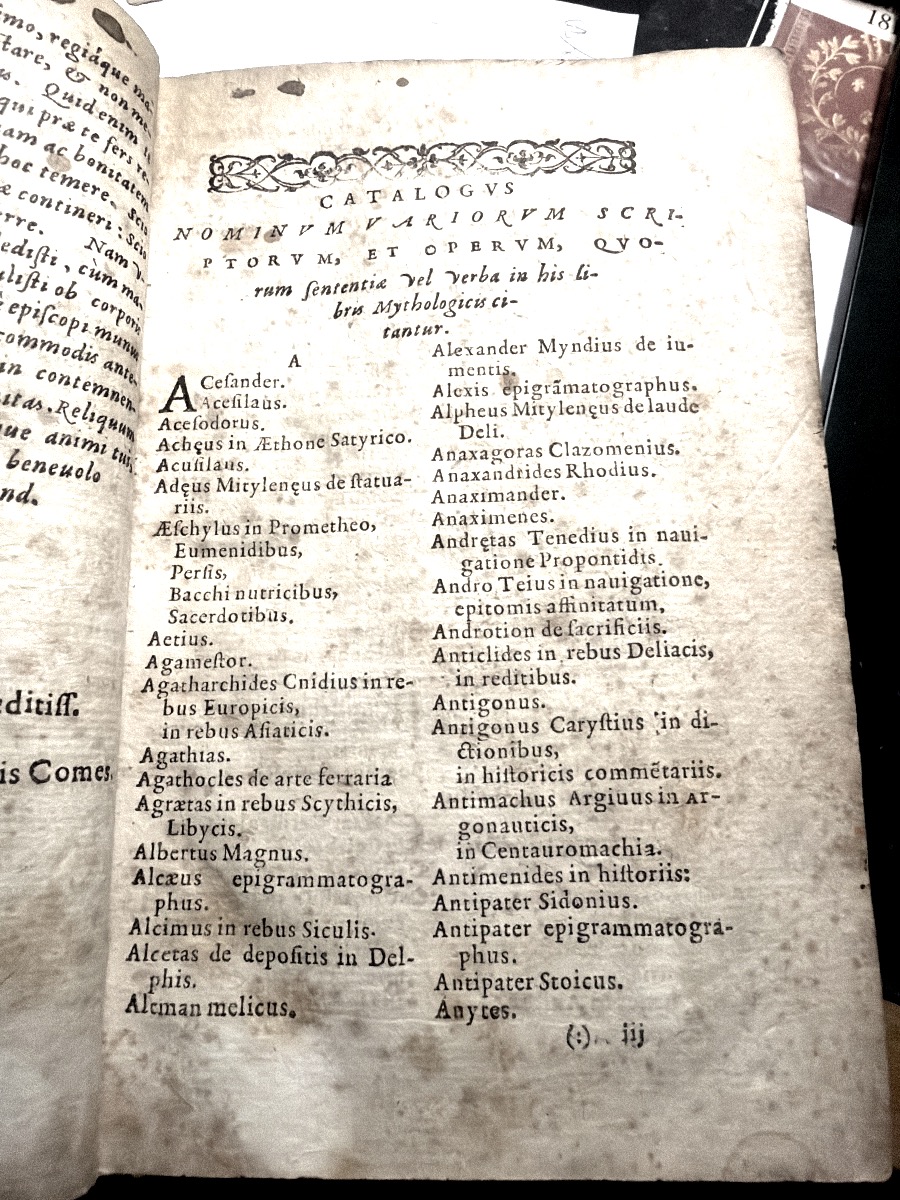 imo, regiáque ma-
stare, & non me-
Quid enim
qui præ te fers
nam ac bonitatem
hoc temere. Scio
æ contineri: Scio
erre. Nam
edisti, cùm ma-
ulisti ob corporis
episcopi munus
commodis ante-
in contemnen-
itas. Reliquum
que animi tui,
beneuolo
nd.
editiss.
is Comes.
18
CATALOGVS
NOMINVM VARIORVM SCRI-
PTORVM, ET OPERVM, QVO-
rum sententiæ vel verba in his li-
bris Mythologicis ci-
tantur.
A
ACesander.
Acesilaus.
Acesodorus.
Achęus in Æthone Satyrico.
Acusilaus.
Adęus Mitylenęus de statua-
riis.
Æschylus in Prometheo,
Eumenidibus,
Persis,
Bacchi nutricibus,
Sacerdotibus.
Aetius.
Agamestor.
Agatharchides Cnidius in re-
bus Europicis,
in rebus Asiaticis.
Agathias.
Agathocles de arte ferraria
Agrætas in rebus Scythicis,
Libycis.
Albertus Magnus.
Alcæus epigrammatogra-
phus.
Alcimus in rebus Siculis.
Alcetas de depositis in Del-
phis.
Alcman melicus.
Alexander Myndius de iu-
mentis.
Alexis epigrãmatographus.
Alpheus Mitylenęus de laude
Deli.
Anaxagoras Clazomenius.
Anaxandrides Rhodius.
Anaximander.
Anaximenes.
Andrętas Tenedius in naui-
gatione Propontidis.
Andro Teius in nauigatione,
epitomis affinitatum.
Androtion de sacrificiis.
Anticlides in rebus Deliacis,
in reditibus.
Antigonus.
Antigonus Carystius in di-
ctionibus,
in historicis commẽtariis.
Antimachus Argiuus in Ar-
gonauticis,
in Centauromachia.
Antimenides in historiis:
Antipater Sidonius.
Antipater epigrammatogra-
phus.
Antipater Stoicus.
Anytes.
(:) iij